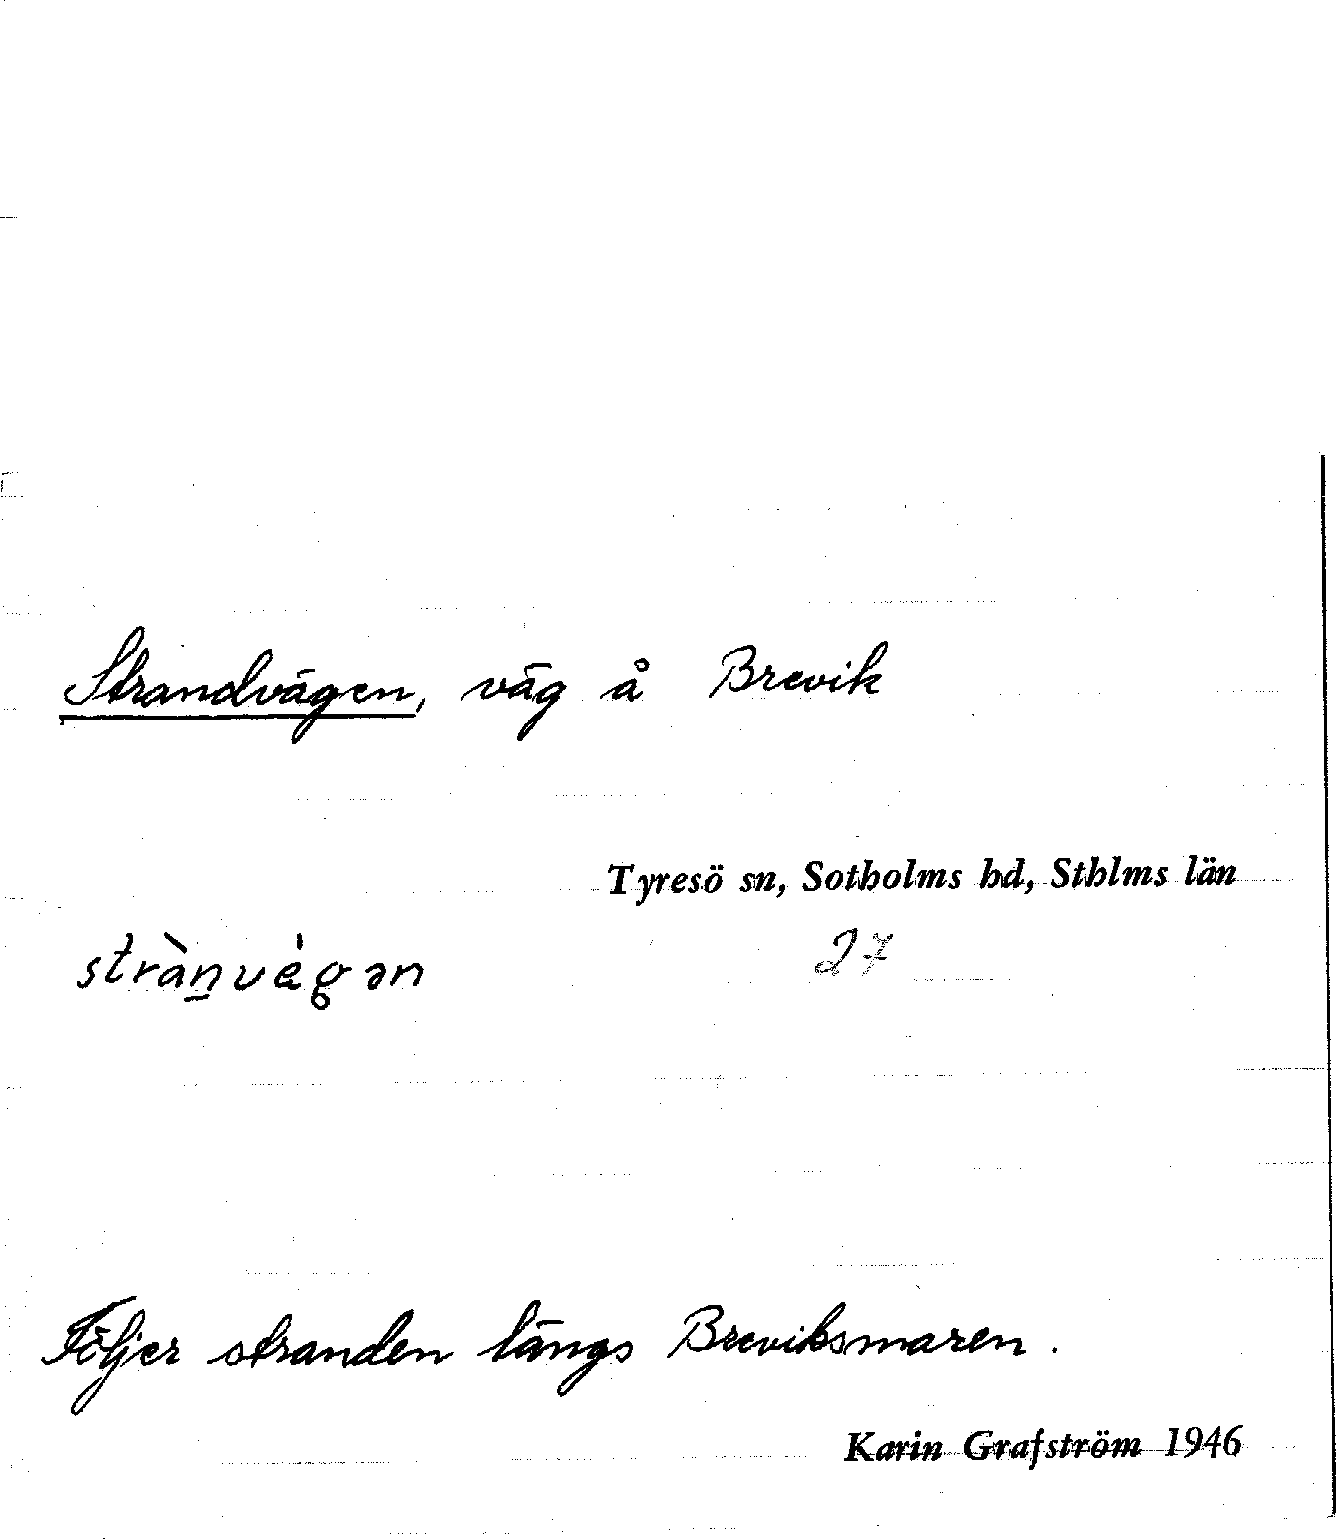 Strandvägen, väg å Brevik
Tyresö sn, Sotholms hd, Sthlms län
strànvègən 27
Följer stranden längs Breviksmaren.
Karin Grafström 1946